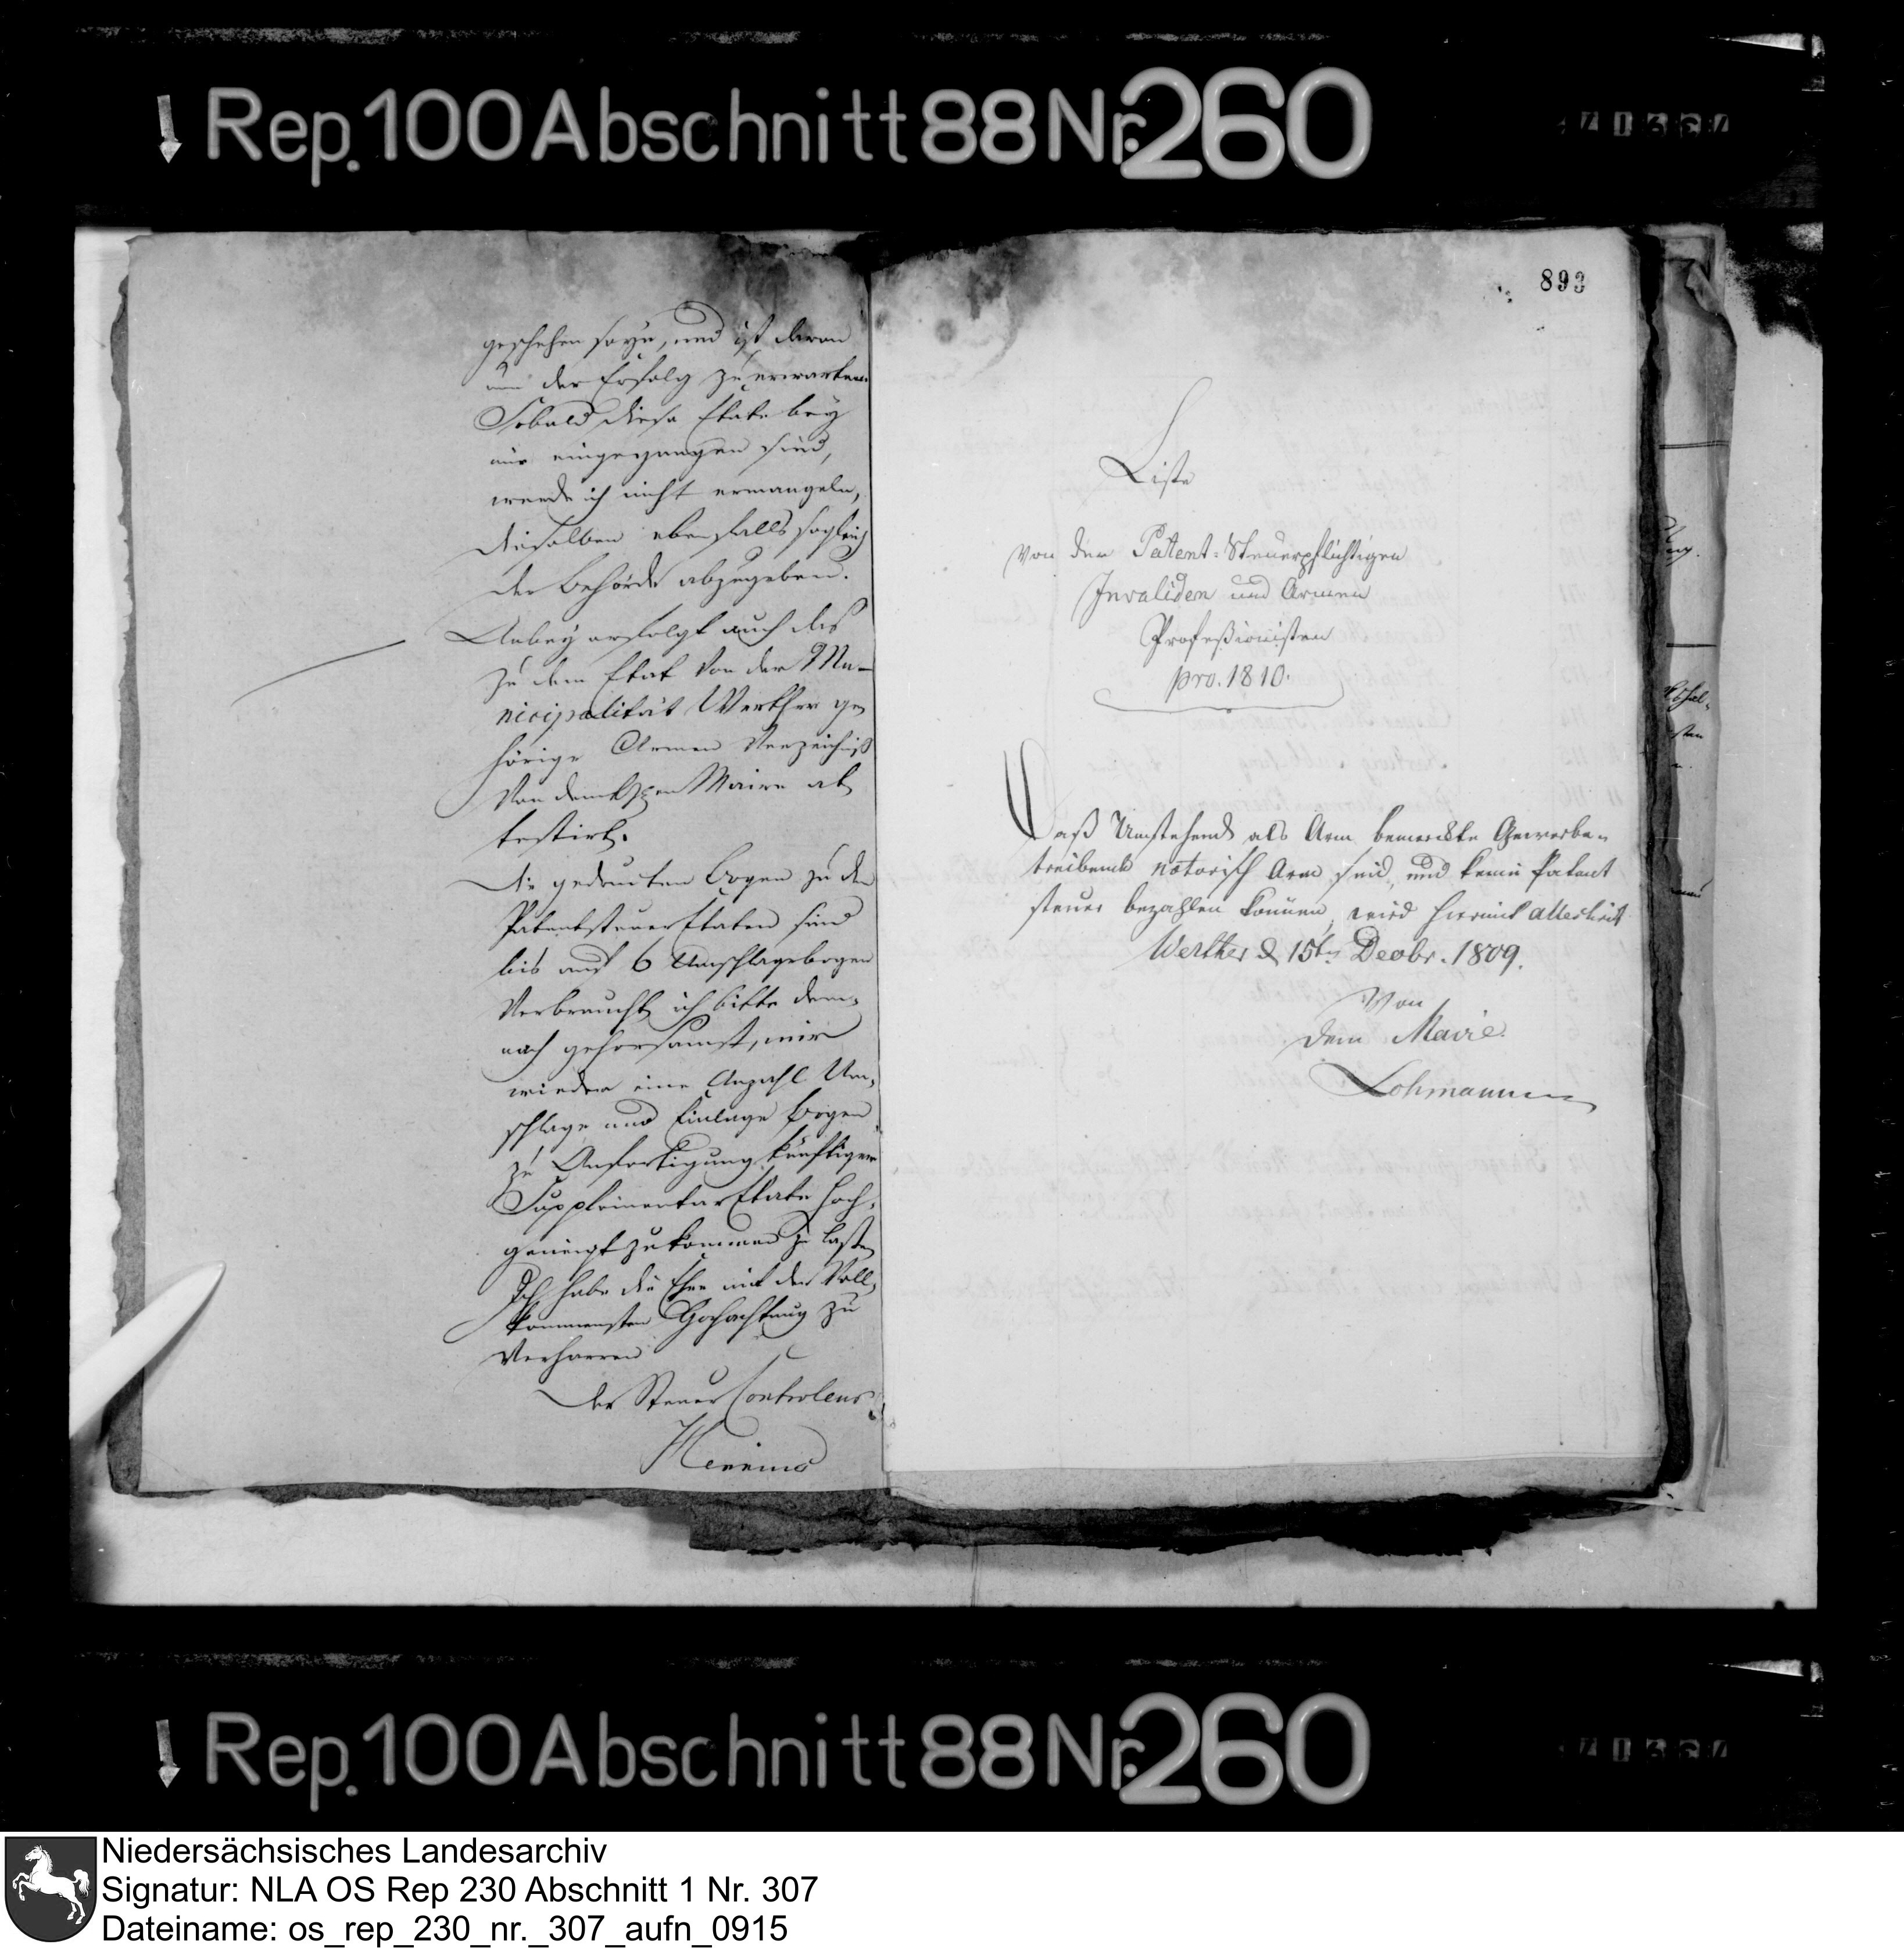 Rep. 100 Abschnitt 88 Nr. 260
geschehen seyn, und ist davon
nun der Erfolg zu erwarten.
Sobald diese Etats bey
mir eingegangen sind,
werde ich nicht ermangeln,
dieselben ebenfalls sogleich
der Behörde abzugeben.
Anbey erfolgt auch das
zu dem Etat von der Mu-
nicipalität Werther ge,
hörige Armen Verzeichniß
von dem Maire at,
testirt.
Die gedruckten Bogen zu den
Patentsteuer Etaten sind
bis auf 6 Umschlagebogen
verbraucht, ich bitte dem,
nach gehorsamst, mir
wieder eine Anzahl Um,
schlage und Einlage bogen
zu Anfertigung künftiger
Supplementar Etats hoch,
geneigt zukommen zu laßen
Ich habe die Ehre mit der Voll,
kommensten Hochachtung zu
verharren
Der Steuer Controleur
893
Liste
von den Patent-Steuerpflichtigen
Invaliden und Armen
Profeßionisten
pro. 1810.
Daß Umstehende als Arm bemerckte Gewerbe-
treibende notorisch Arm sind, und keine Patent
steuer bezahlen können, wird hiermit attestirt
Werther d. 15ten Decbr. 1809.
Von
dem Maire
Lohmann
Rep. 100 Abschnitt 88 Nr. 260
Niedersächsisches Landesarchiv
Signatur: NLA OS Rep 230 Abschnitt 1 Nr. 307
Dateiname: os_rep_230_nr._307_aufn_0915